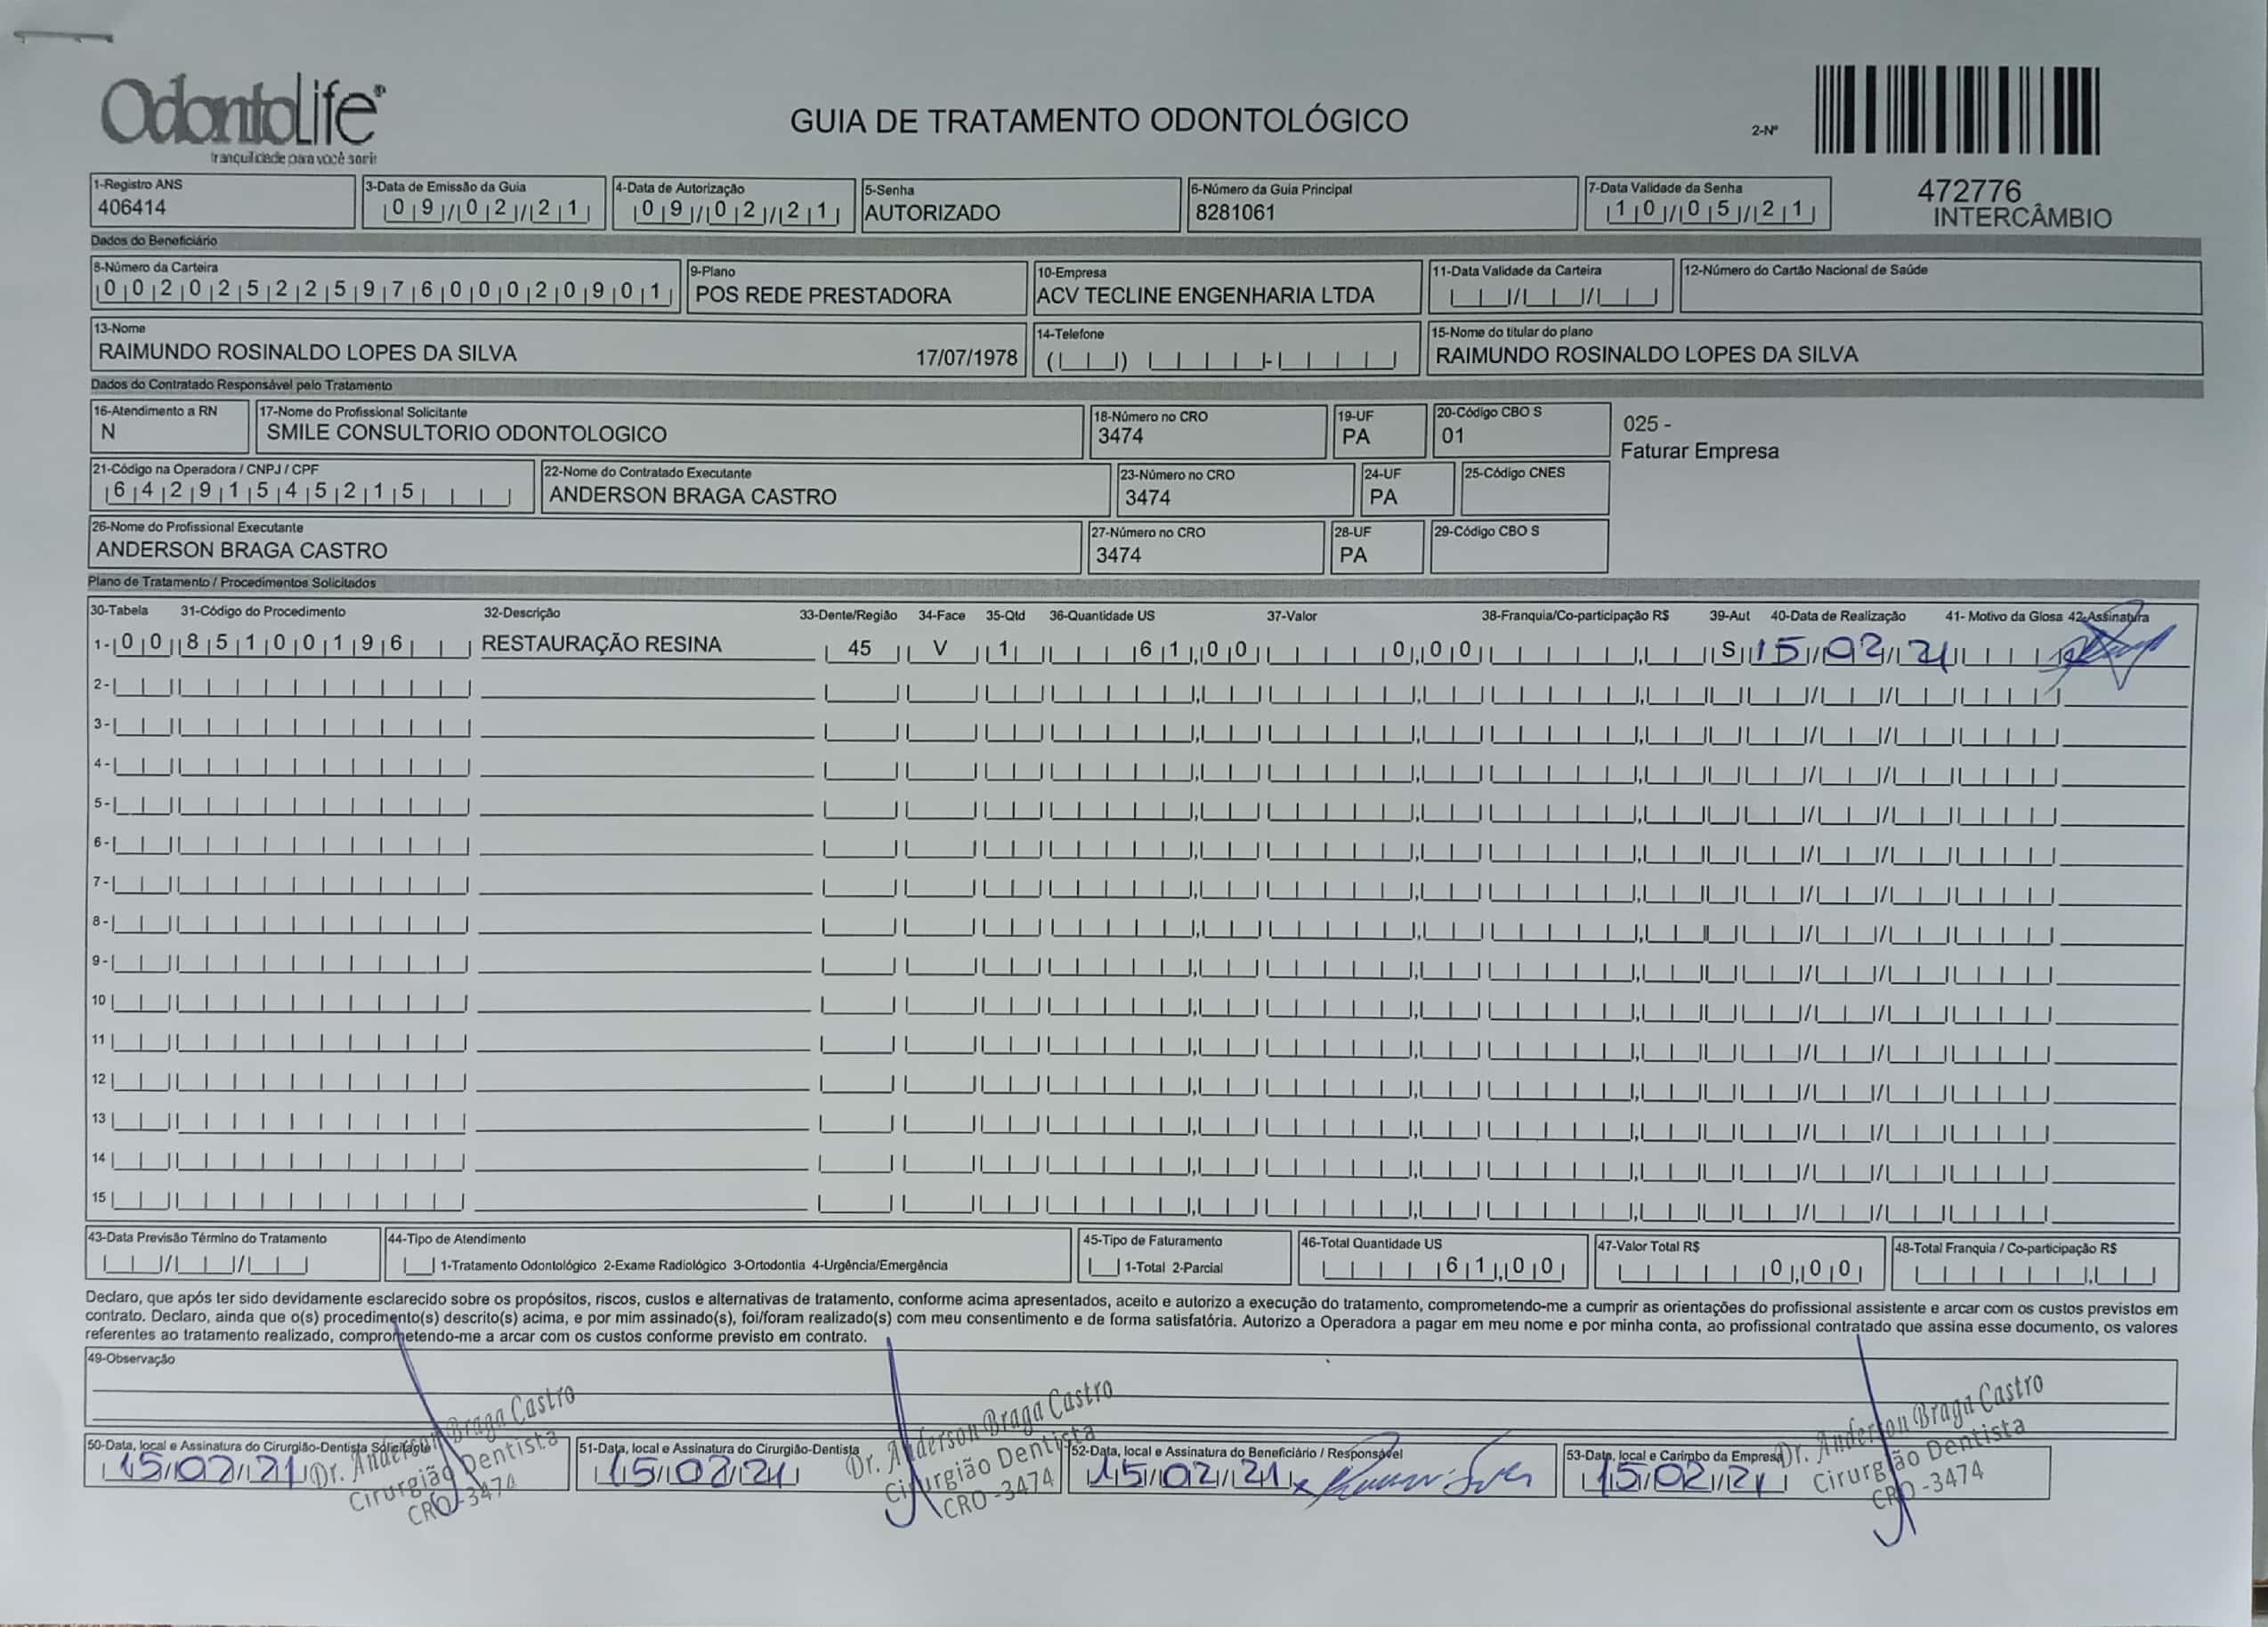 OdontoLife®
tranquilidade para você sorrir
GUIA DE TRATAMENTO ODONTOLÓGICO
2-Nº
472776
INTERCÂMBIO
1-Registro ANS
406414
3-Data de Emissão da Guia
09/02/21
4-Data de Autorização
09/02/21
5-Senha
AUTORIZADO
6-Número da Guia Principal
8281061
7-Data Validade da Senha
10/05/21
Dados do Beneficiário
8-Número da Carteira
00202522597600020901
9-Plano
POS REDE PRESTADORA
10-Empresa
ACV TECLINE ENGENHARIA LTDA
11-Data Validade da Carteira
12-Número do Cartão Nacional de Saúde
13-Nome
RAIMUNDO ROSINALDO LOPES DA SILVA 17/07/1978
14-Telefone
15-Nome do titular do plano
RAIMUNDO ROSINALDO LOPES DA SILVA
Dados do Contratado Responsável pelo Tratamento
16-Atendimento a RN
N
17-Nome do Profissional Solicitante
SMILE CONSULTORIO ODONTOLOGICO
18-Número no CRO
3474
19-UF
PA
20-Código CBO S
01
025 -
Faturar Empresa
21-Código na Operadora / CNPJ / CPF
64291545215
22-Nome do Contratado Executante
ANDERSON BRAGA CASTRO
23-Número no CRO
3474
24-UF
PA
25-Código CNES
26-Nome do Profissional Executante
ANDERSON BRAGA CASTRO
27-Número no CRO
3474
28-UF
PA
29-Código CBO S
Plano de Tratamento / Procedimentos Solicitados
30-Tabela 31-Código do Procedimento 32-Descrição 33-Dente/Região 34-Face 35-Qtd 36-Quantidade US 37-Valor 38-Franquia/Co-participação R$ 39-Aut 40-Data de Realização 41- Motivo da Glosa 42-Assinatura
1- 00 85100196 RESTAURAÇÃO RESINA 45 V 1 61,00 0,00 S 15/02/21
2-
3-
4-
5-
6-
7-
8-
9-
10
11
12
13
14
15
43-Data Previsão Término do Tratamento
44-Tipo de Atendimento
1-Tratamento Odontológico 2-Exame Radiológico 3-Ortodontia 4-Urgência/Emergência
45-Tipo de Faturamento
1-Total 2-Parcial
46-Total Quantidade US
61,00
47-Valor Total R$
0,00
48-Total Franquia / Co-participação R$
Declaro, que após ter sido devidamente esclarecido sobre os propósitos, riscos, custos e alternativas de tratamento, conforme acima apresentados, aceito e autorizo a execução do tratamento, comprometendo-me a cumprir as orientações do profissional assistente e arcar com os custos previstos em
contrato. Declaro, ainda que o(s) procedimento(s) descrito(s) acima, e por mim assinado(s), foi/foram realizado(s) com meu consentimento e de forma satisfatória. Autorizo a Operadora a pagar em meu nome e por minha conta, ao profissional contratado que assina esse documento, os valores
referentes ao tratamento realizado, comprometendo-me a arcar com os custos conforme previsto em contrato.
49-Observação
50-Data, local e Assinatura do Cirurgião-Dentista Solicitante
15/02/21
Dr. Anderson Braga Castro
Cirurgião Dentista
CRO -3474
51-Data, local e Assinatura do Cirurgião-Dentista
15/02/21
Dr. Anderson Braga Castro
Cirurgião Dentista
CRO -3474
52-Data, local e Assinatura do Beneficiário / Responsável
15/02/21
53-Data, local e Carimbo da Empresa
15/02/21
Dr. Anderson Braga Castro
Cirurgião Dentista
CRO -3474